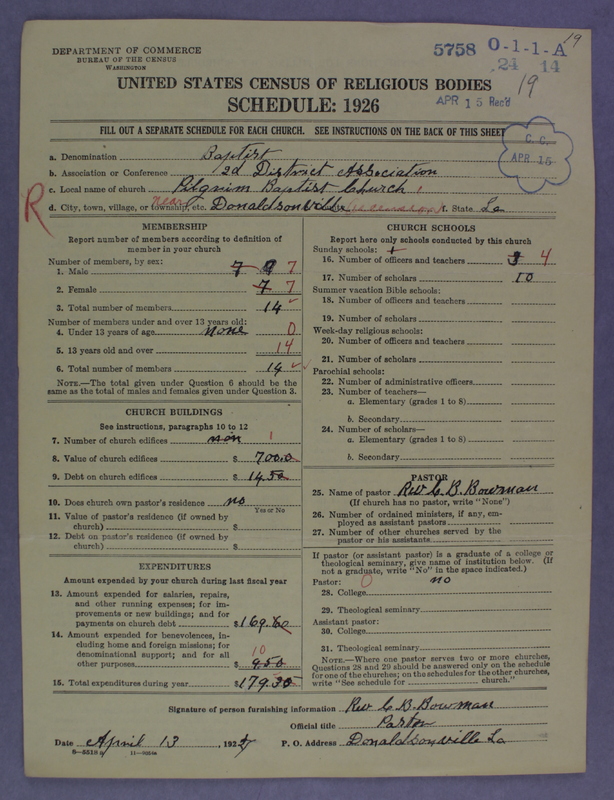 DEPARTMENT OF COMMERCE
BUREAU OF THE CENSUS
WASHINGTON
5758 0-1-1-A 19
24 14
19
APR 15 Rec'd
UNITED STATES CENSUS OF RELIGIOUS BODIES
SCHEDULE: 1926
FILL OUT A SEPARATE SCHEDULE FOR EACH CHURCH. SEE INSTRUCTIONS ON THE BACK OF THIS SHEET
C. C.
APR 15
a. Denomination Baptist
b. Association or Conference 2d District Association
c. Local name of church Pilgrium Baptist Church
R
d. City, town, village, or township, etc. near Donaldsonville State La
MEMBERSHIP
Report number of members according to definition of
member in your church
Number of members, by sex:
1. Male 7 7
2. Female 7 7
3. Total number of members 14
Number of members under and over 13 years old:
4. Under 13 years of age none 0
5. 13 years old and over 14
6. Total number of members 14
NOTE.—The total given under Question 6 should be the
same as the total of males and females given under Question 3.
CHURCH BUILDINGS
See instructions, paragraphs 10 to 12
7. Number of church edifices non 1
8. Value of church edifices $ 700.0
9. Debt on church edifices $ 14.50
10. Does church own pastor's residence no
Yes or No
11. Value of pastor's residence (if owned by
church) $
12. Debt on pastor's residence (if owned by
church) $
EXPENDITURES
Amount expended by your church during last fiscal year
13. Amount expended for salaries, repairs,
and other running expenses; for im-
provements or new buildings; and for
payments on church debt $169.60
14. Amount expended for benevolences, in-
cluding home and foreign missions; for
denominational support; and for all
other purposes 10 950
15. Total expenditures during year $179.30
CHURCH SCHOOLS
Report here only schools conducted by this church
Sunday schools:
16. Number of officers and teachers 3 4
17. Number of scholars 10
Summer vacation Bible schools:
18. Number of officers and teachers
19. Number of scholars
Week-day religious schools:
20. Number of officers and teachers
21. Number of scholars
Parochial schools:
22. Number of administrative officers
23. Number of teachers—
a. Elementary (grades 1 to 8)
b. Secondary
24. Number of scholars—
a. Elementary (grades 1 to 8)
b. Secondary
PASTOR
25. Name of pastor Rev C. B. Bowman
(If church has no pastor, write "None")
26. Number of ordained ministers, if any, em-
ployed as assistant pastors
27. Number of other churches served by the
pastor or his assistants
If pastor (or assistant pastor) is a graduate of a college or
theological seminary, give name of institution below. (If
not a graduate, write "No" in the space indicated.)
Pastor: 0 no
28. College
29. Theological seminary
Assistant pastor:
30. College
31. Theological seminary
NOTE.—Where one pastor serves two or more churches,
Questions 28 and 29 should be answered only on the schedule
for one of the churches; on the schedules for the other churches,
write "See schedule for church."
Signature of person furnishing information Rev C. B. Bowman
Official title Paster
Date April 13, 1927 P. O. Address Donaldsonville La
8-5518 a 11-9054a